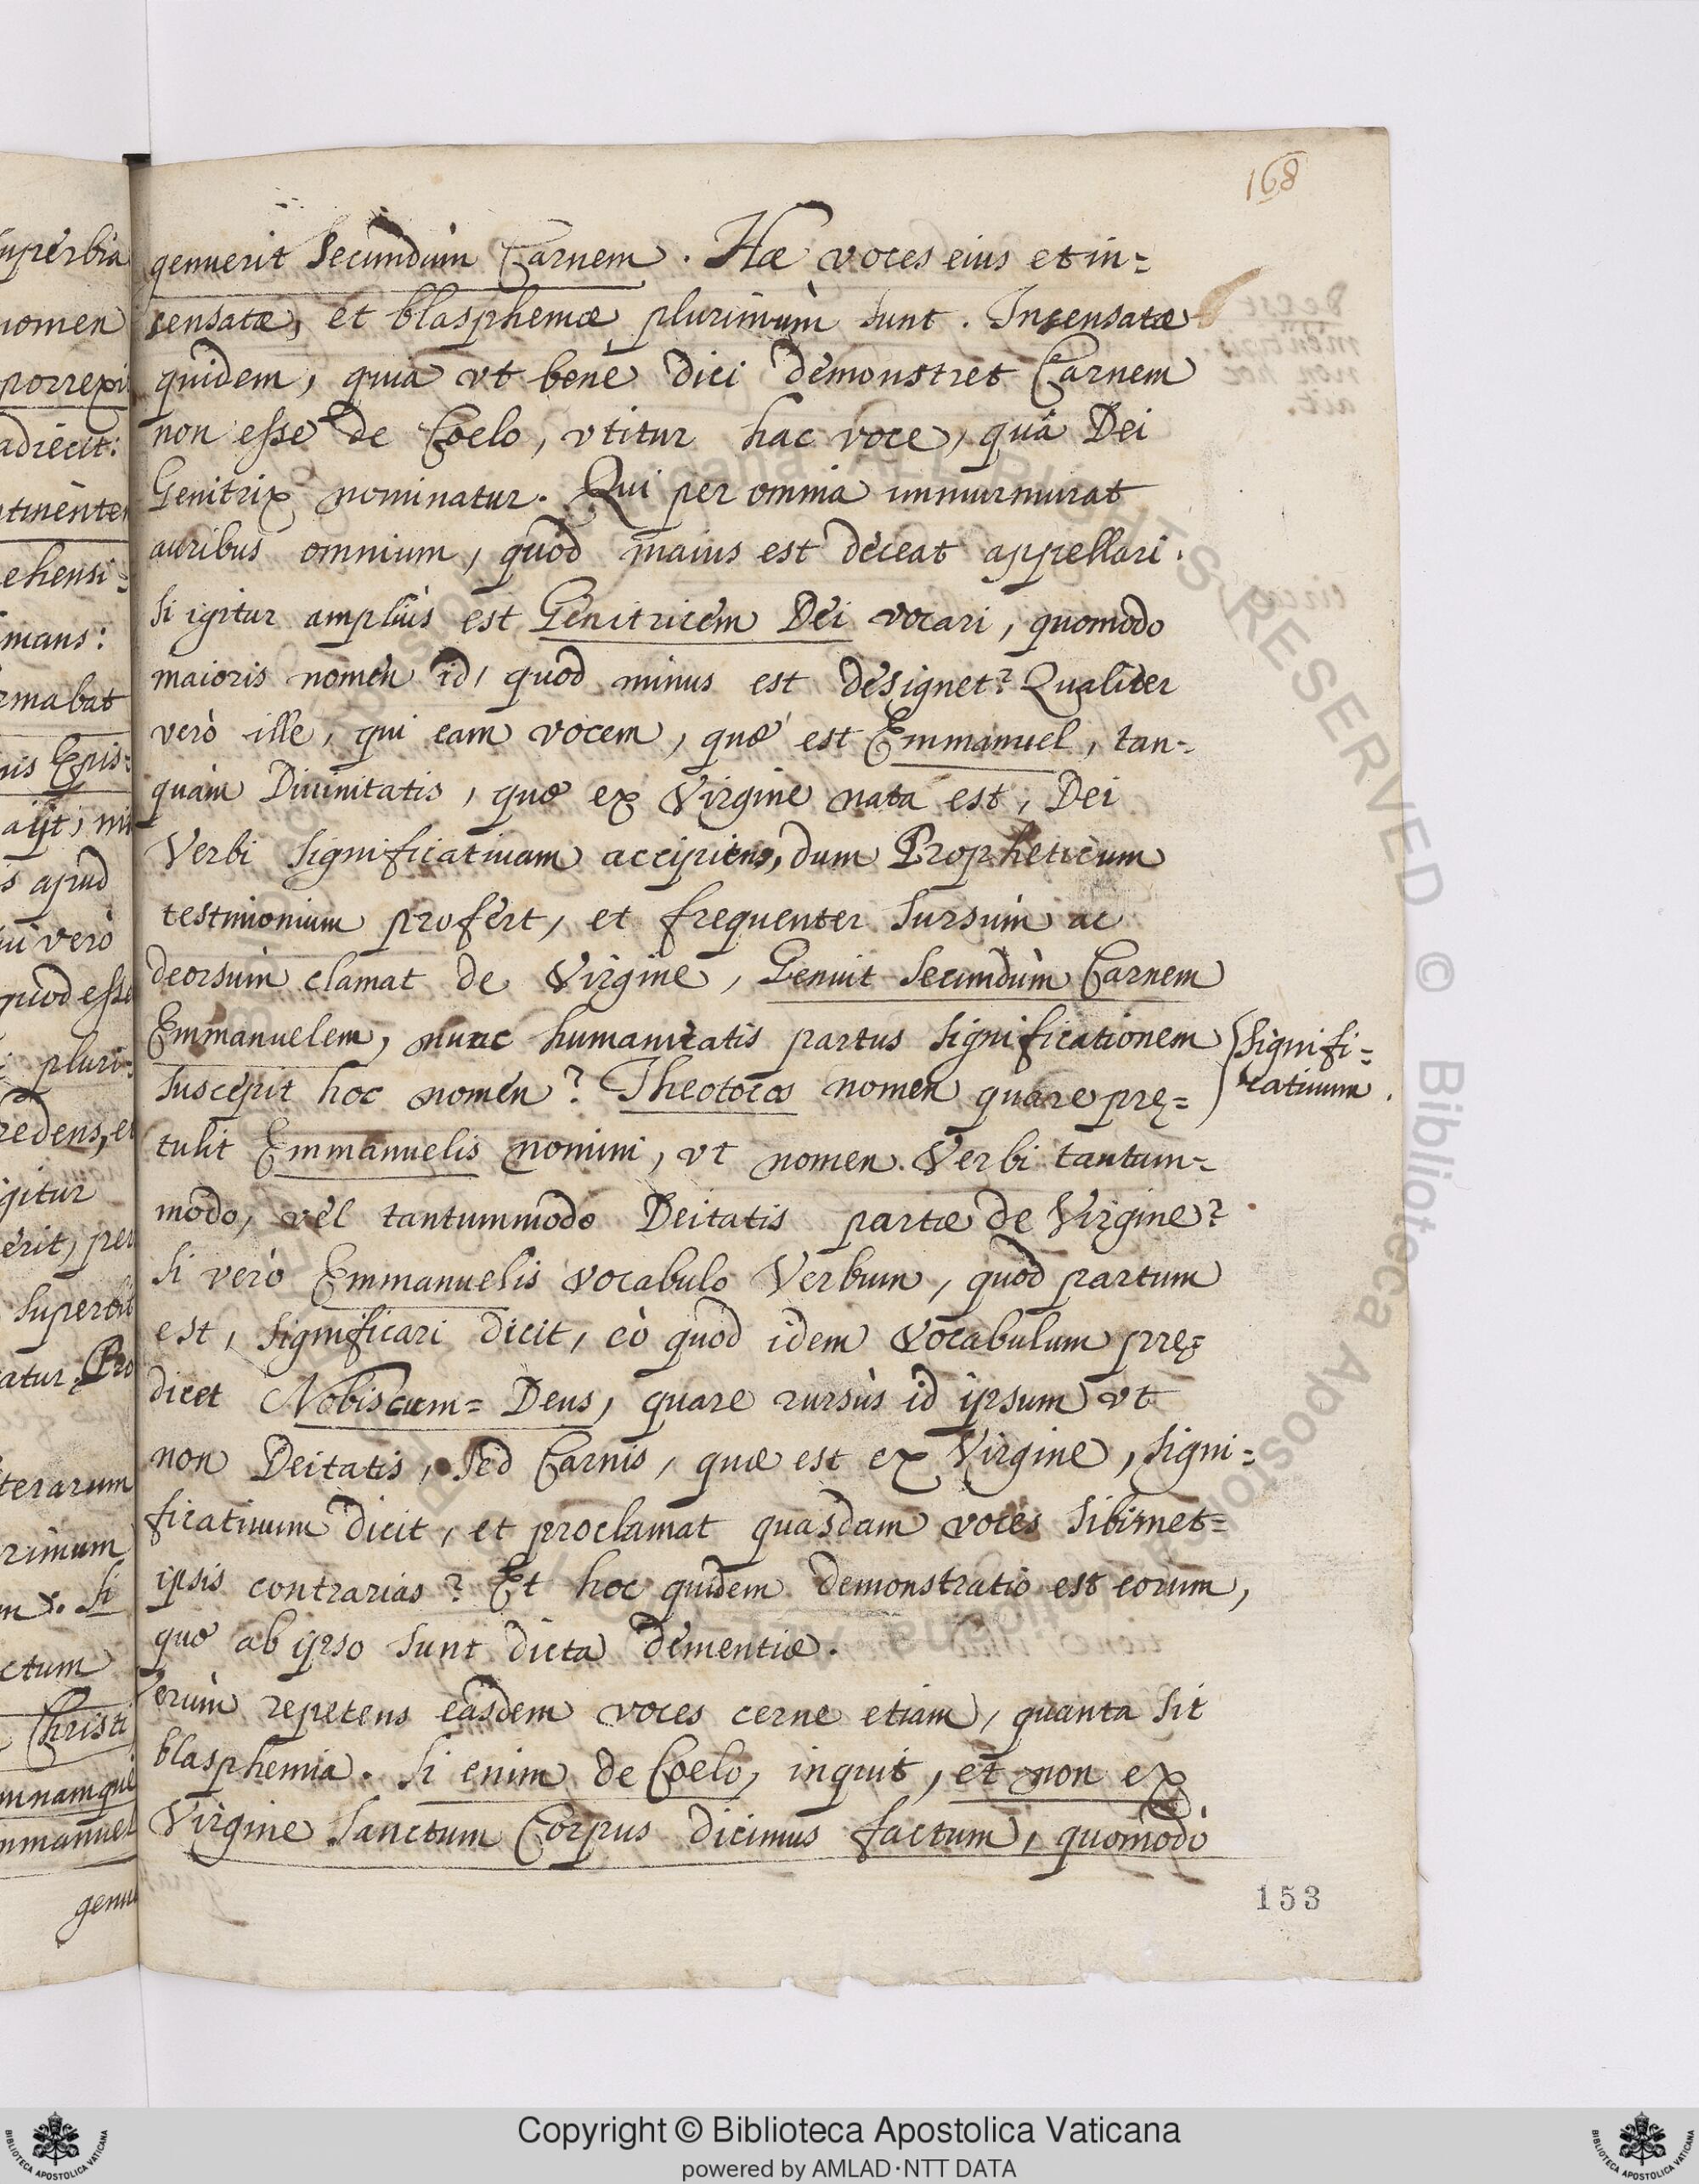 168
genuerit Secundùm Carnem. Hæ voces eius et in=
sensatæ, et blasphemæ plurimùm sunt. Insensatæ
quidem, quia vt bene dici demonstret Carnem
non esse de Coelo, vtitur hac voce, quâ Dei
Genitrix nominatur. Qui per omnia immurmurat
auribus omnium, quod maius est deceat appellari.
Si igitur ampliùs est Genitricem Dei vocari, quomodo
maioris nomen id, quod minus est designet? Qualiter
verò ille, qui eam vocem, quæ est Emmanuel, tan=
quàm Diuinitatis, quæ ex Virgine nata est, Dei
Verbi significatiuam accipiens, dum Propheticum
testimonium profert, et frequenter sursùm ac
deorsùm clamat de Virgine, Genuit Secundùm Carnem
Emmanuelem, nunc humanitatis partus significationem
suscepit hoc nomen? Theotocos nomen quare prę=
tulit Emmanuelis nomini, vt nomen Verbi tantum=
modo, vel tantummodo Deitatis partæ de Virgine?
Si verò Emmanuelis vocabulo Verbum, quod partum
est, significari dicit, eò quod idem vocabulum prę=
dicet Nobiscum=Deus, quare rursùs id ipsum vt
non Deitatis, sed Carnis, quæ est ex Virgine, signi=
ficatiuum dicit, et proclamat quasdam voces sibimet=
ipsis contrarias? Et hoc quidem demonstratio est eorum,
quæ ab ipso sunt dicta dementiæ.
erùm repetens easdem voces cerne etiam, quanta sit
blasphemia. Si enim de Coelo, inquit, et non ex
Virgine Sanctum Corpus dicimus factum, quomodò
signifi=
catiuum.
153
superbia
nomen
porrexi
adiecit:
ntinenten
ehensi=
mans:
rmabat
nis Epis=
s apud
verò
quod esse
pluri=
redens, et
igitur
erit, per
superbi
atur. Pro
terarum
rimum
Si
ctum
Christi
mnamque
mmanuel
genu
RIGHTS RESERVED © Biblioteca Apostolica Vaticana
Copyright © Biblioteca Apostolica Vaticana
powered by AMLAD·NTT DATA
BIBLIOTECA APOSTOLICA VATICANA
BIBLIOTECA APOSTOLICA VATICANA